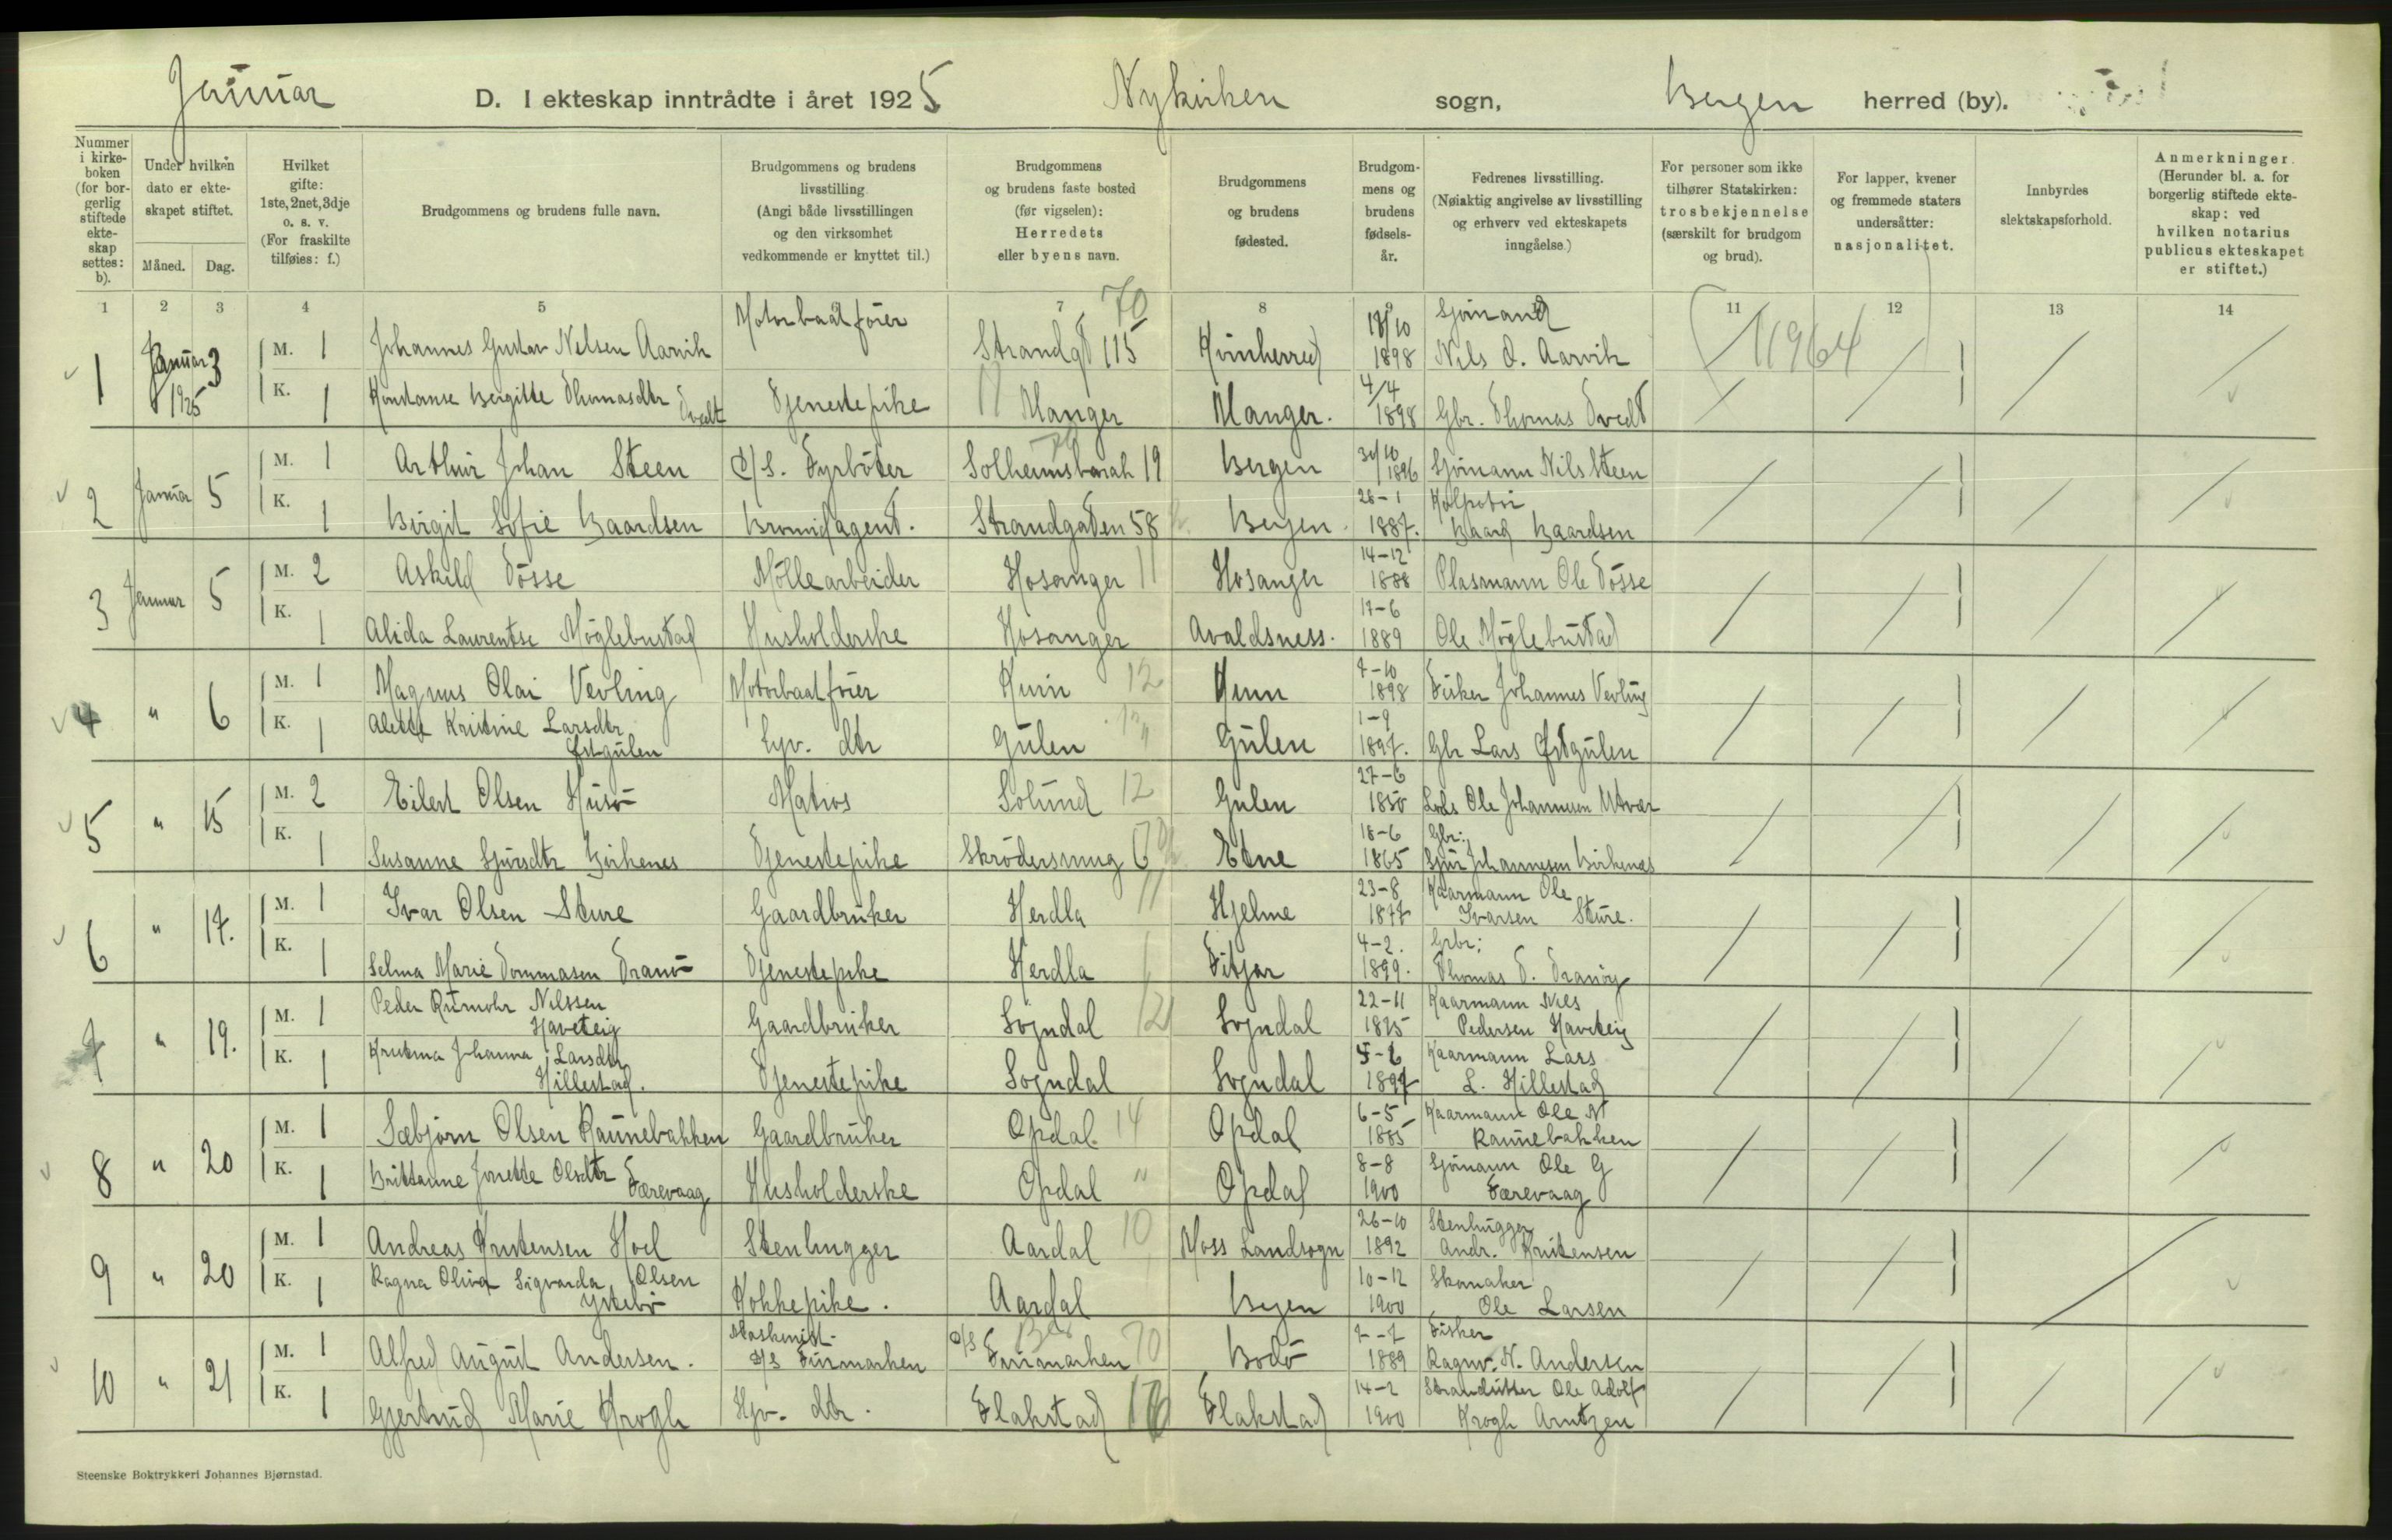 Januar D. I ekteskap inntrådte i året 1925 Nykirken sogn, Bergen herred (by).
Nummer i kirkeboken (for borgerlig stiftede ekteskap settes: b).
Under hvilken dato er ekteskapet stiftet.
Måned. Dag.
Hvilket gifte: 1ste, 2net, 3dje o. s. v. (For fraskilte tilføies: f.)
Brudgommens og brudens fulle navn.
Brudgommens og brudens livsstilling (Angi både livsstillingen og den virksomhet vedkommende er knyttet til.)
Brudgommens og brudens faste bosted (før vigselen): Herredets eller byens navn.
Brudgommens og brudens fødested.
Brudgommens og brudens fødselsår.
Fedrenes livsstilling. (Nøiaktig angivelse av livsstilling og erhverv ved ekteskapets inngåelse.)
For personer som ikke tilhører Statskirken: trosbekjennelse (særskilt for brudgom og brud).
For lapper, kvener og fremmede staters undersåtter: nasjonalitet.
Innbyrdes slektskapsforhold.
Anmerkninger. (Herunder bl. a. for borgerlig stiftede ekteskap: ved hvilken notarius publicus ekteskapet er stiftet.)
1 2 3 4 5 7 8 9 11 12 13 14
1 Januar 1925 3 M. 1 Johannes Gustav Nelsen Aarvik Motorbaatfører Strandgt 115 70 Kvinherred 18/10 1898 Sjømand Nils O. Aarvik 11964
K. 1 Konstanse Bergitte Thomasdtr Tvedt Tjenestepike Manger 11 Manger. 4/4 1898 Gbr. Thomas Tvedt
2 Januar 5 M. 1 Arthur Johan Steen D/S. Fyrbøter Solheimsbarak 19 Bergen 30/10 1896 Sjømann Nils Steen
K. 1 Birgit Sofie Baardsen Strandgaten 58 Bergen. 26-1 1887. Baard Baardsen
3 Januar 5 M. 2 Askild Tösse Möllearbeider Hosanger 11 Hosanger 14-12 1888 Plasmann Ole Tösse
K. 1 Alida Laurentse Möglebustad Husholderske Hosanger Avaldsness. 17-6 1889 Ole Möglebustad
4 " 6 M. 1 Magnus Olai Vevling Motorbaatfører Kinn 12 Kinn 7-10 1898 Fisker Johannes Vevling
K. 1 Alette Kristine Larsdtr Østgulen Hjv. dtr Gulen " Gulen 1-9 1897. Gbr Lars Østgulen
5 " 15 M. 2 Eilert Olsen Husö Matros Solund 12 Gulen 27-6 1850 Lods Ole Johannesen Utvær
K. 1 Susanne Sjursdtr Birkenes Tjenestepike Skrödersmug 6 70 Etne 18-6 1865 Gbr: Sjur Johannesen Birkenes
6 " 17. M. 1 Ivar Olsen Sture Gaardbruker Herdla 11 Hjelme 23-8 1877 Kaarmann Ole Ivarsen Sture.
K. 1 Selma Marie Tommasen Tranö Tjenestepike Herdla Fitjar 4-2. 1899. Grbr; Thomas T. Tranöy
7 " 19. M. 1 Peder Nilssen Haveteig Gaardbruker Sogndal 12 Sogndal 22-11 1895 Kaarmann Nils Pedersen Haveteig
K. 1 Kristina Johanna Larsdtr Hillestad. Tjenestepike Sogndal Sogndal 5-6 1897 Kaarmann Lars L. Hillestad
8 " 20 M. 1 Sæbjørn Olsen Raunebakken Gaardbruker Opdal 14 Opdal 6-5 1885 Kaarmann Ole N Raunebakken
K. 1 Brittanne Jonette Olsdtr Færevaag Husholderske Opdal " Opdal 8-8 1900 Sjømann Ole G Færevaag
9 " 20 M. 1 Andreas Kristensen Hoel Stenhugger Aardal 10 Moss Landsogn 26-10 1892 Stenhugger Andr. Kristensen
K. 1 Ragna Oliva Sigvarda Olsen Ystebö Kokkepike. Aardal Bergen 10-12 1900 Skomaker Ole Larsen
10 " 21 M. 1 Alfred August Andersen. Maskinist D/S Finmarken D/S Finmarken 70 Bodö 7-7 1889 Fisker Ragnv. N. Andersen
K. 1 Gjertrud Marie Krogh Hjv. dtr. Flakstad Flakstad 14-2 1900 Strandsitter Ole Adolf Krogh Arntzen
Steenske Boktrykkeri Johannes Bjørnstad.